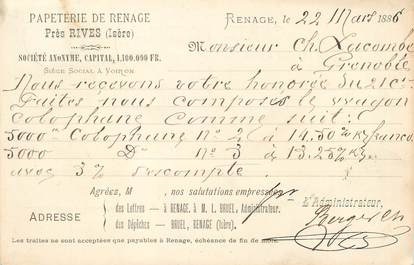 PAPETERIE DE RENAGE
Près RIVES (Isère)
SOCIÉTÉ ANONYME, CAPITAL, 1,100.000 FR.
SIÈGE SOCIAL A VOIRON
RENAGE, le 22 Mars 1886
Monsieur Ch. Lacombe
à Grenoble
Nous recevons votre honorée du 21 ct
Faites nous composer le wagon
colophane comme suit:
5000 Colophane No 2 à 14,50 % K franco
5000 Do No 3 à 13,25 % K
avec 3 % d'escompte.
Agréez, M nos salutations empressées,
L'Administrateur,
ADRESSE
des Lettres — A RENAGE, A M. L. BRUEL, Administrateur.
des Dépêches — BRUEL, RENAGE (Isère).
Les traites ne sont acceptées que payables à Renage, échéance de fin de mois.